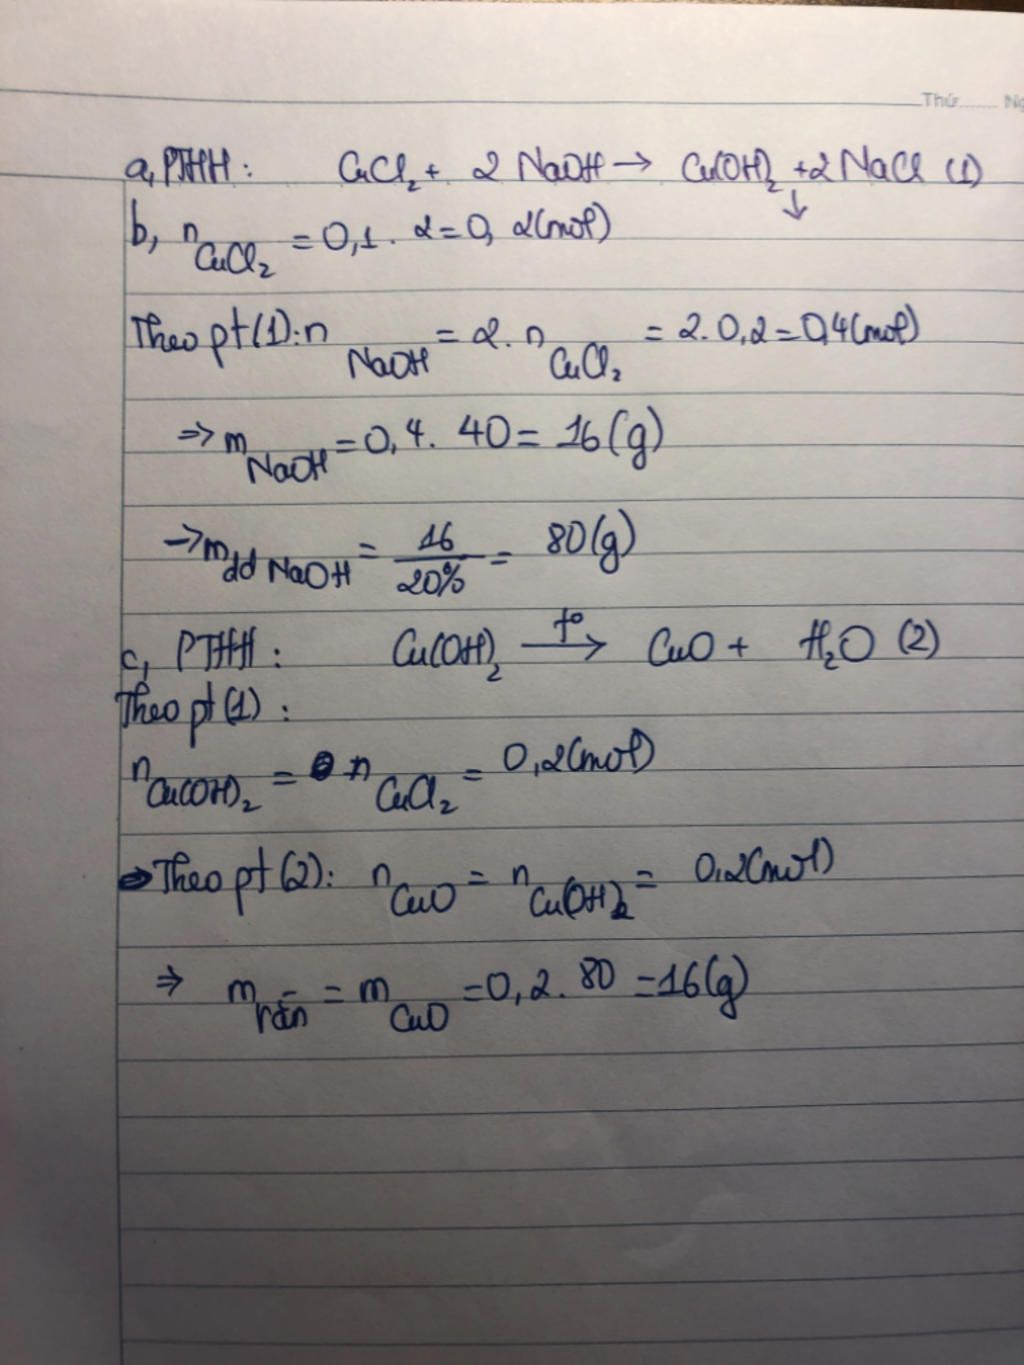 Thứ........ Ng
a, PTHH: CuCl₂ + 2 NaOH → Cu(OH)₂ ↓ + 2 NaCl (1)
b, n CuCl₂ = 0,1 . 2 = 0, 2(mol)
Theo pt(1): n NaOH = 2. n CuCl₂ = 2. 0,2 = 0,4(mol)
=> m NaOH = 0,4. 40 = 16(g)
→ m dd NaOH = 16/20% = 80(g)
c, PTHH: Cu(OH)₂ —t°→ CuO + H₂O (2)
Theo pt(1):
n Cu(OH)₂ = n CuCl₂ = 0,2(mol)
Theo pt(2): n CuO = n Cu(OH)₂ = 0,2(mol)
=> m rắn = m CuO = 0,2. 80 = 16(g)